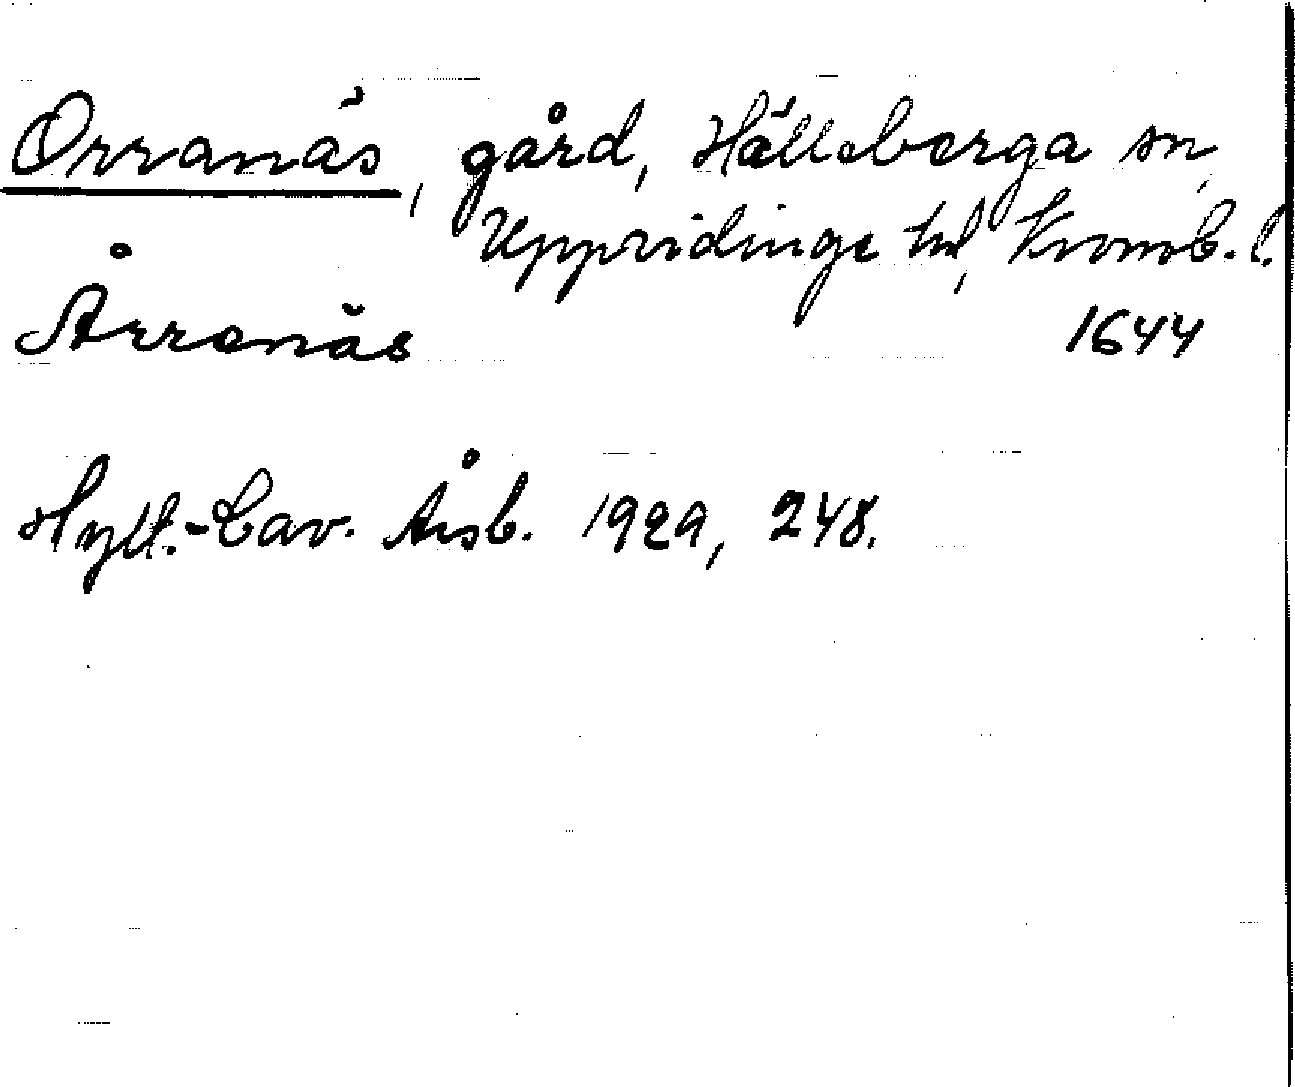 Orranäs, gård, Hälleberga sn,
Uppvidinge hd, Kronob. l.
Årranäs 1644
Hylt.-Cav. Årsb. 1929, 248.